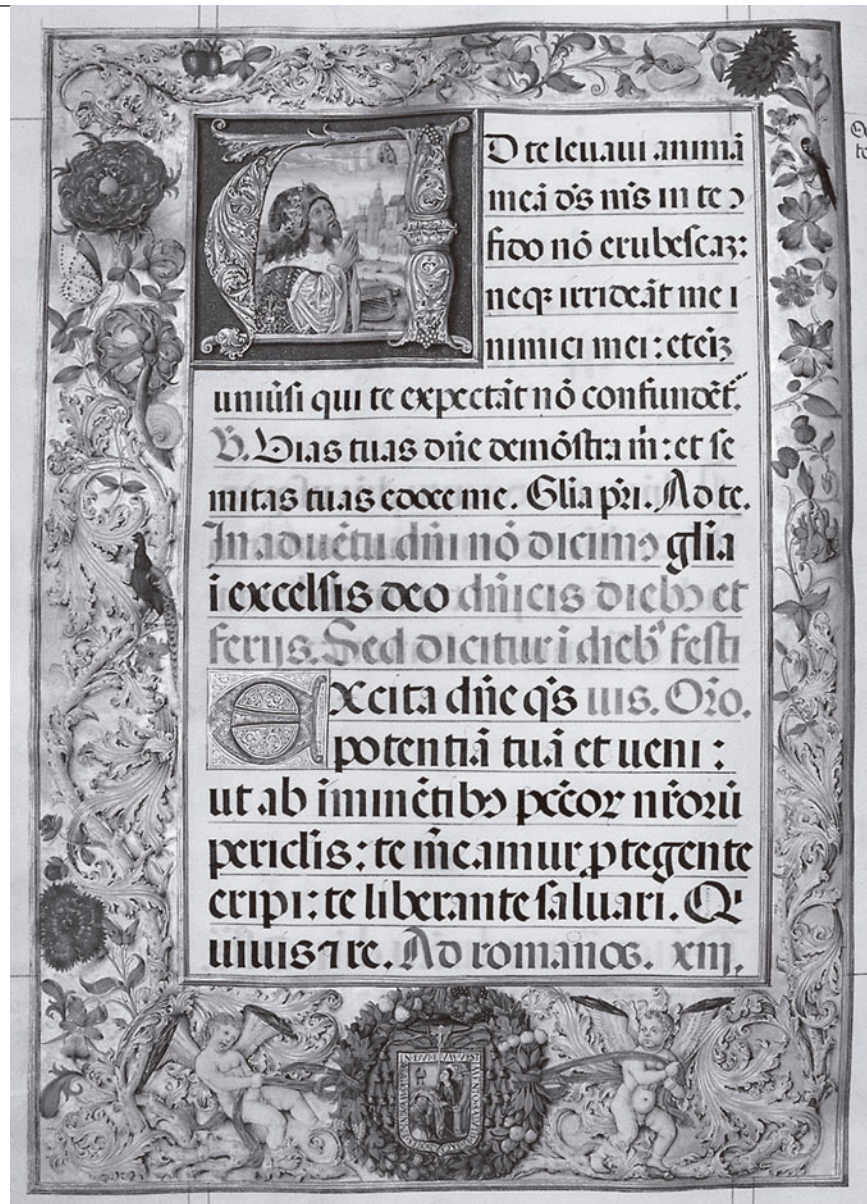 AD te leuaui animā
meā d̄s m̄s in te ɔ
fido nō erubescaȝ:
neqꝫ irrideāt me i
nimici mei: eteiȝ
uniūsi qui te expectāt nō confundēt̄.
V. Vias tuas dn̄e demōstra m̄: et se
mitas tuas edoce me. Gl̄ia pr̄i. Ad te.
In aduētu dn̄i nō dicimꝰ gl̄ia
ī excelsis deo dn̄icis diebꝰ et
ferijs. Sed dicitur ī diebꝰ festi
Excita dn̄e qs̄ uis. Or̄o.
potentiā tuā et ueni:
ut ab īminētibꝰ pc̄cor nr̄orū
periclis: te m̄eamur ꝓtegente
eripi: te liberante saluari. Qͥ
uiuis ⁊ re. Ad romanos. xiij.